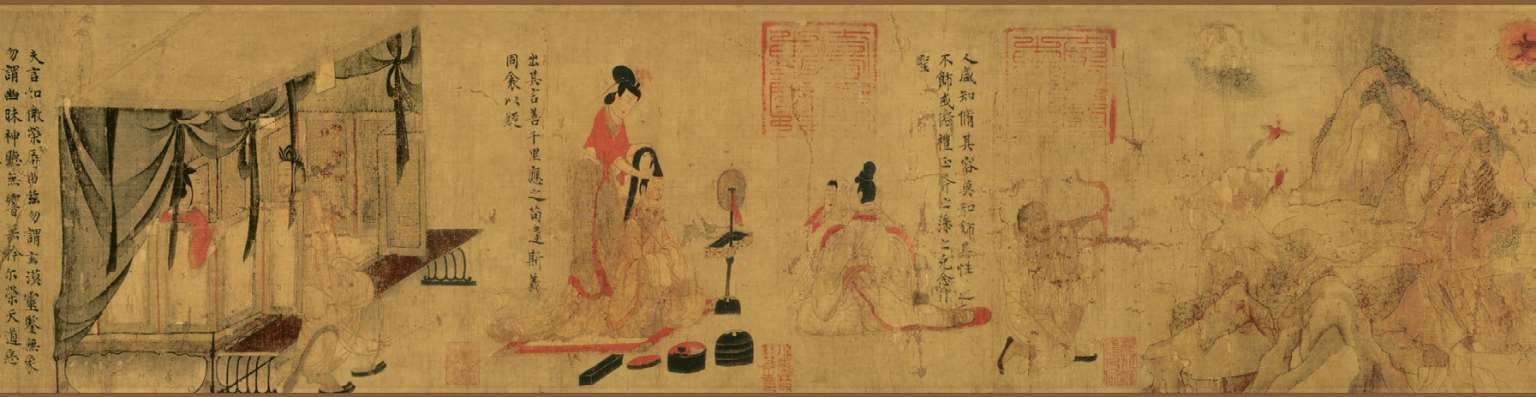 人咸知脩其容莫知飾其性之
不飾或愆禮正斧之藻之克念作
聖
出其言善千里應之苟違斯義
同衾以疑
夫言如微榮辱由茲勿謂玄漠靈鑒無象
勿謂幽昧神聽無響無矜尔榮天道惡